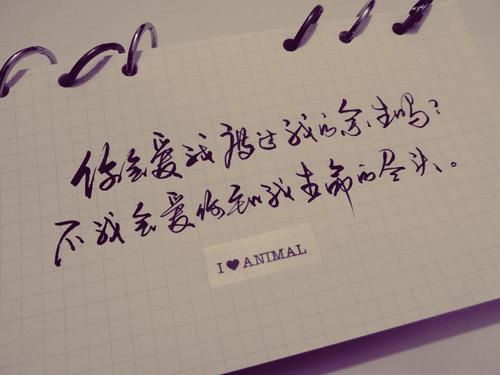 你会爱我撑过我的余生吗?
不我会爱你到我生命的尽头。
I ♥ ANIMAL